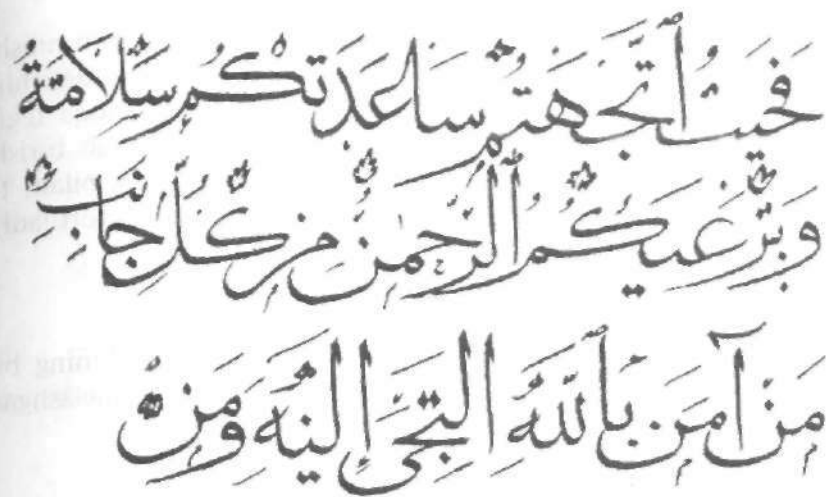 فَحَيْثُ ٱتَّجَهْتُمْ سَاعَدَتْكُمْ سَلَامَةٌ
وَيَرْعَيكُمُ ٱلرَّحْمٰنُ مِنْ كُلِّ جَانِبٍ
مَنْ آمَنَ بِٱللّٰهِ الْتَجَى إِلَيْهِ وَمَنْ